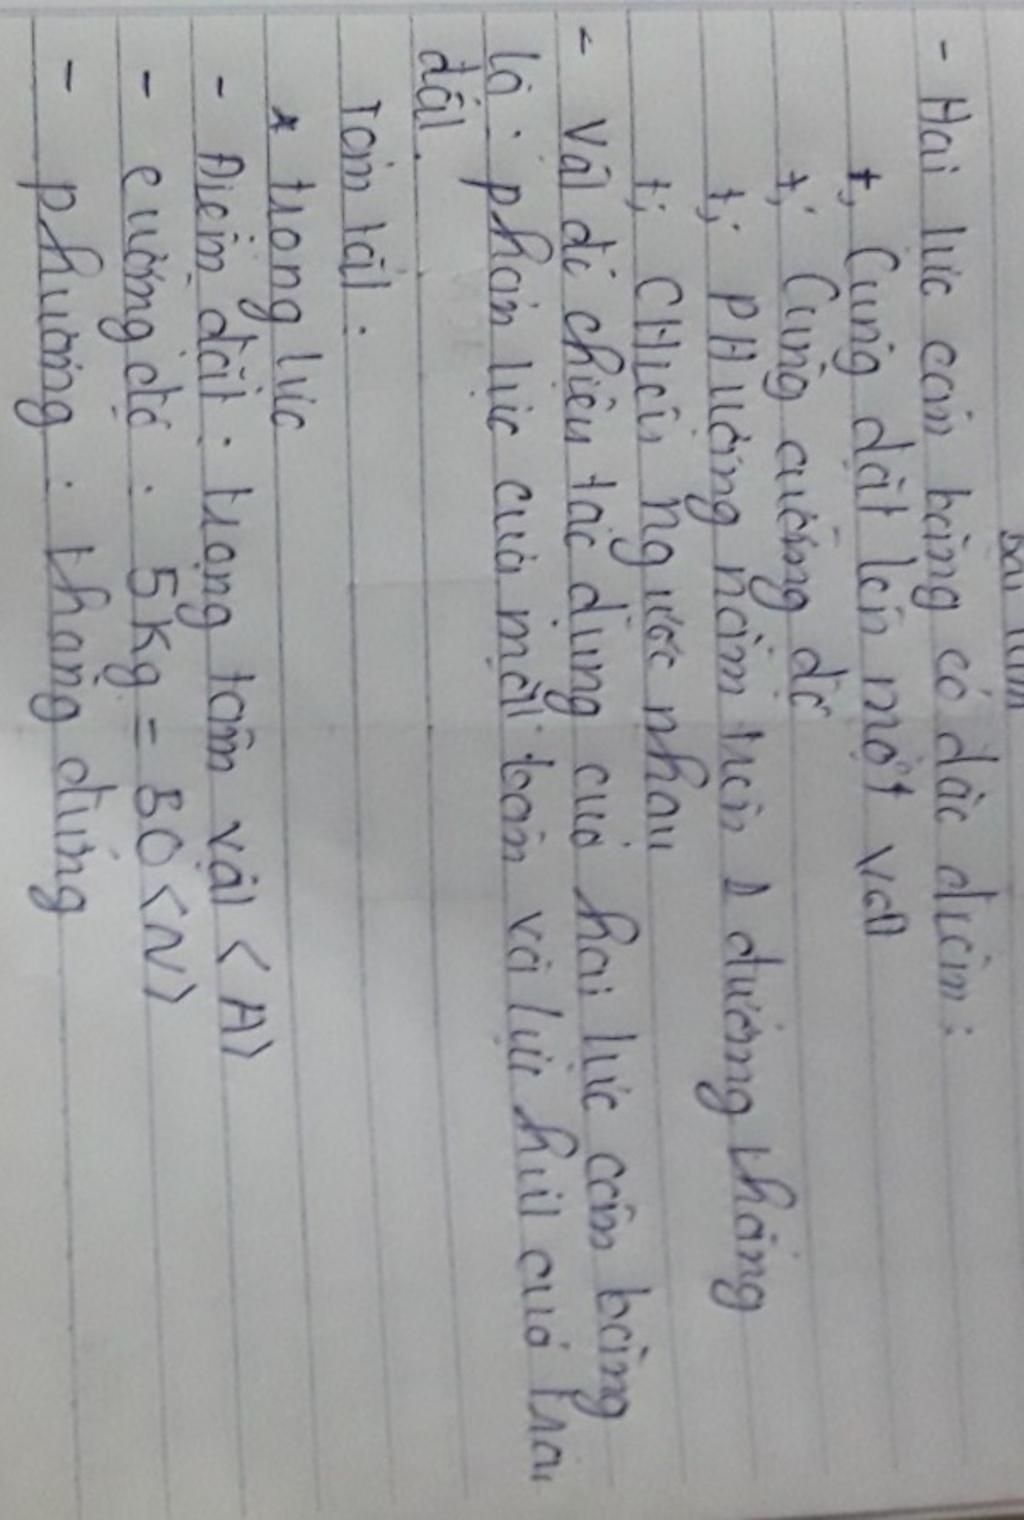 Bài làm
- Hai lực cân bằng có đặc điểm:
+, Cùng đặt lên một vật
+, Cùng cường độ
+, Phương nằm trên 1 đường thẳng
+, Chiều ngược nhau
- Vật đó chịu tác dụng của hai lực cân bằng
là: phản lực của mặt bàn và lực hút của trái
đất.
Tóm tắt:
* trọng lực
- Điểm đặt: trọng tâm vật <A>
- cường độ: 5kg = 50 <N>
- phương: thẳng đứng